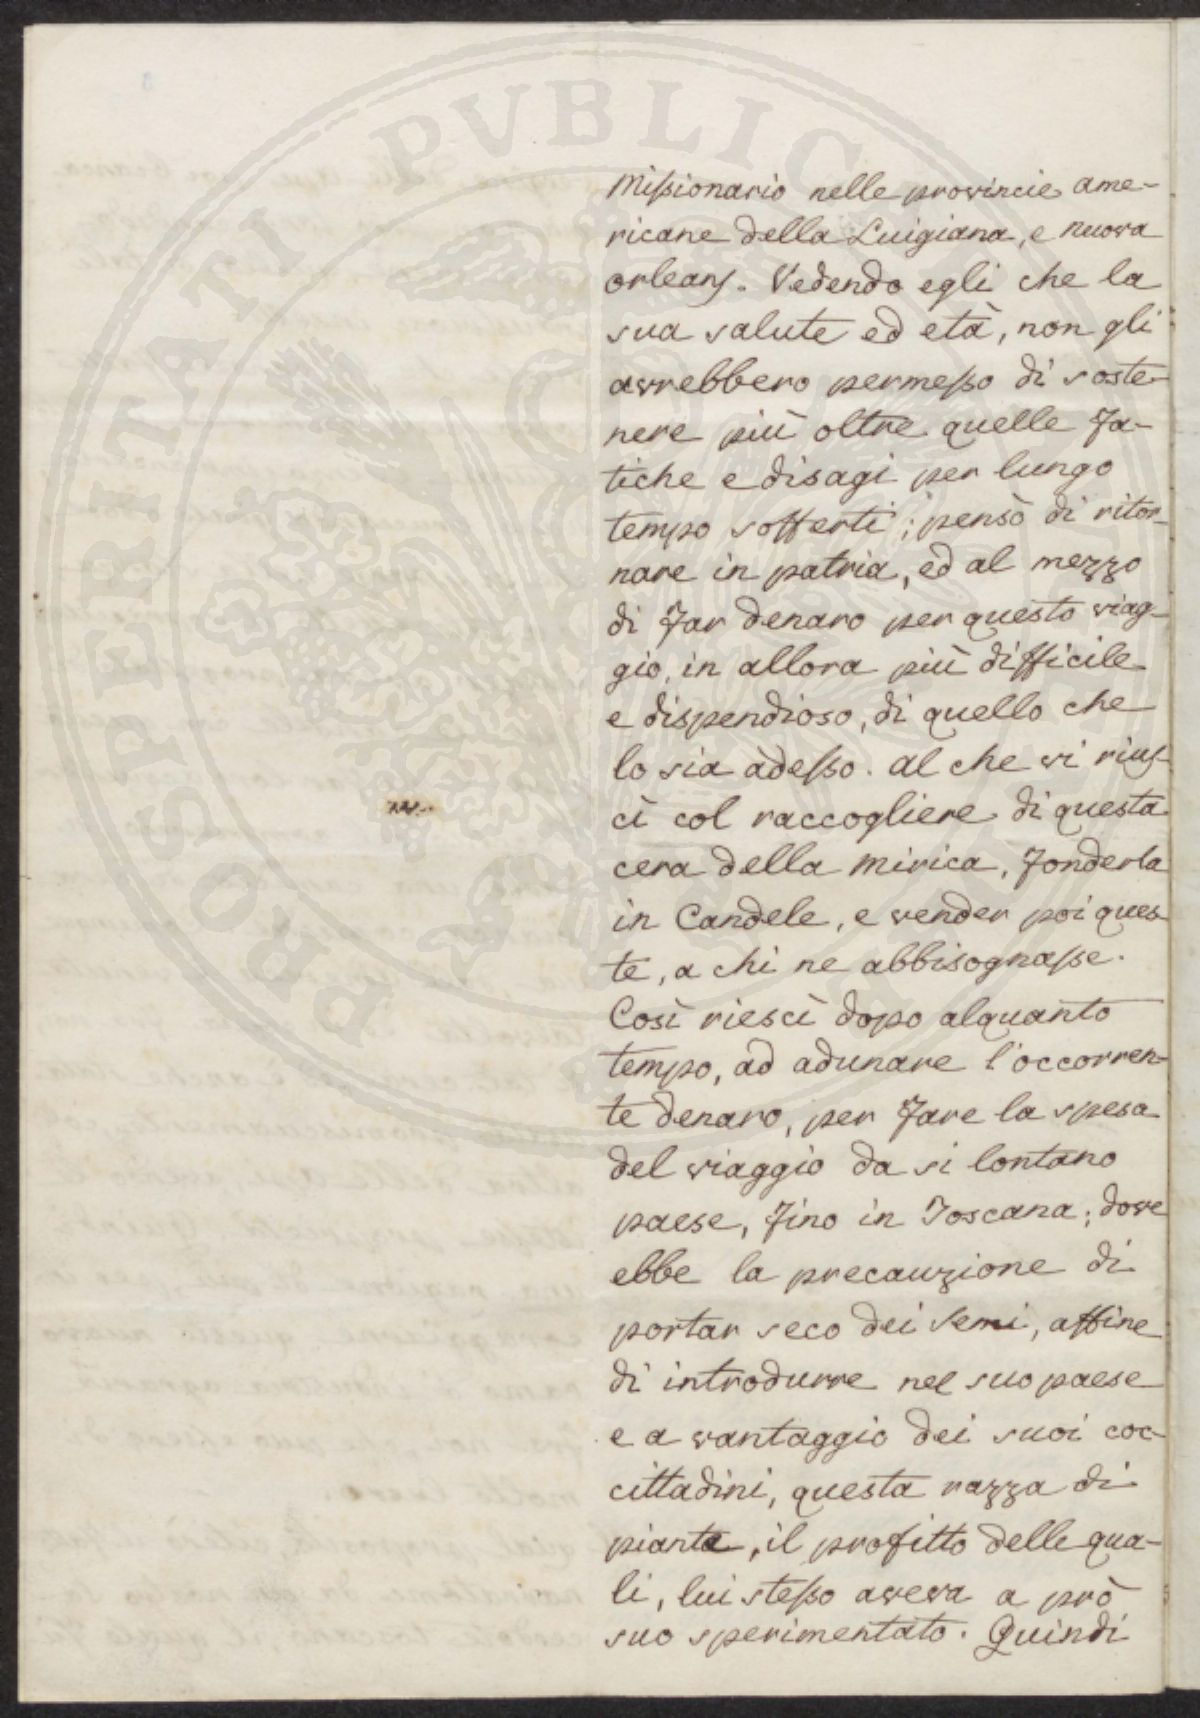 PROSPERITATI PVBLICAE
Missionario nelle provincie ame-
ricane della Luigiana, e nuova
orleans. Vedendo egli che la
sua salute ed età, non gli
avrebbero permesso di soste-
nere più oltre quelle fa-
tiche e disagi per lungo
tempo sofferti; pensò di ritor-
nare in patria, ed al mezzo
di far denaro per questo viag-
gio, in allora più difficile
e dispendioso, di quello che
lo sia adesso. al che vi rius-
cì col raccogliere di questa
cera della mirica, fonderla
in Candele, e vender poi ques-
te, a chi ne abbisognasse.
Così riescì dopo alquanto
tempo, ad adunare l'occorren-
te denaro, per fare la spesa
del viaggio da si lontano
paese, fino in Toscana; dove
ebbe la precauzione di
portar seco dei semi, affine
di introdurre nel suo paese
e a vantaggio dei suoi coc-
cittadini, questa razza di
piante, il profitto delle qua-
li, lui stesso aveva a prò
suo sperimentato. Quindi